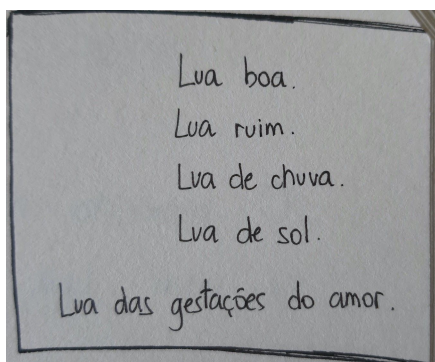 Lua boa.
Lua ruim.
Lua de chuva.
Lua de sol.
Lua das gestações do amor.